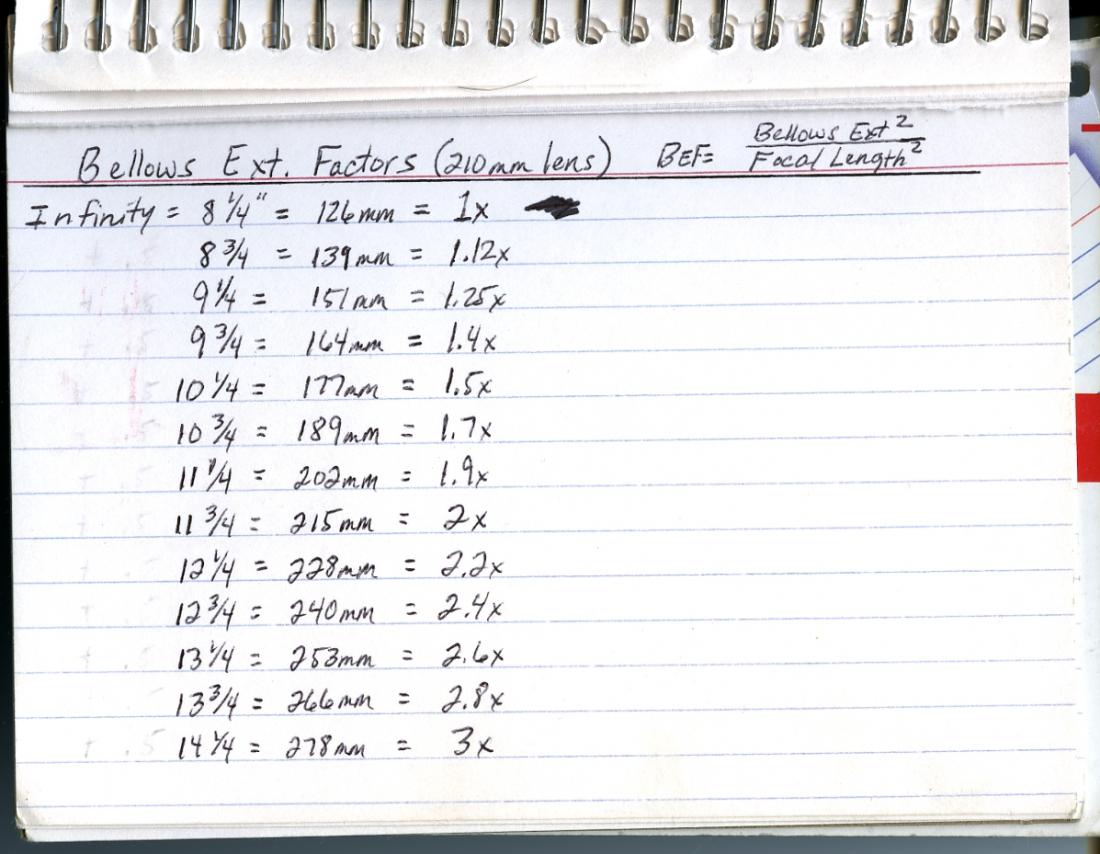 Bellows Ext. Factors (210mm lens) BEF= Bellows Ext²
Focal Length²
Infinity = 8 1/4" = 126mm = 1x
8 3/4 = 139mm = 1.12x
9 1/4 = 151mm = 1.25x
9 3/4 = 164mm = 1.4x
10 1/4 = 177mm = 1.5x
10 3/4 = 189mm = 1.7x
11 1/4 = 202mm = 1.9x
11 3/4 = 215mm = 2x
12 1/4 = 228mm = 2.2x
12 3/4 = 240mm = 2.4x
13 1/4 = 253mm = 2.6x
13 3/4 = 266mm = 2.8x
14 1/4 = 278mm = 3x